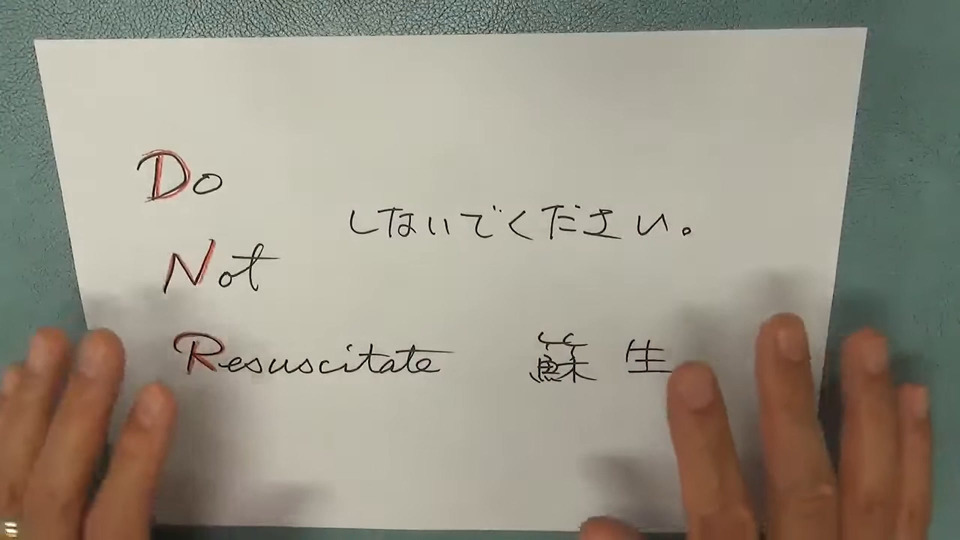 Do
しないでください。
Not
Resuscitate 蘇生